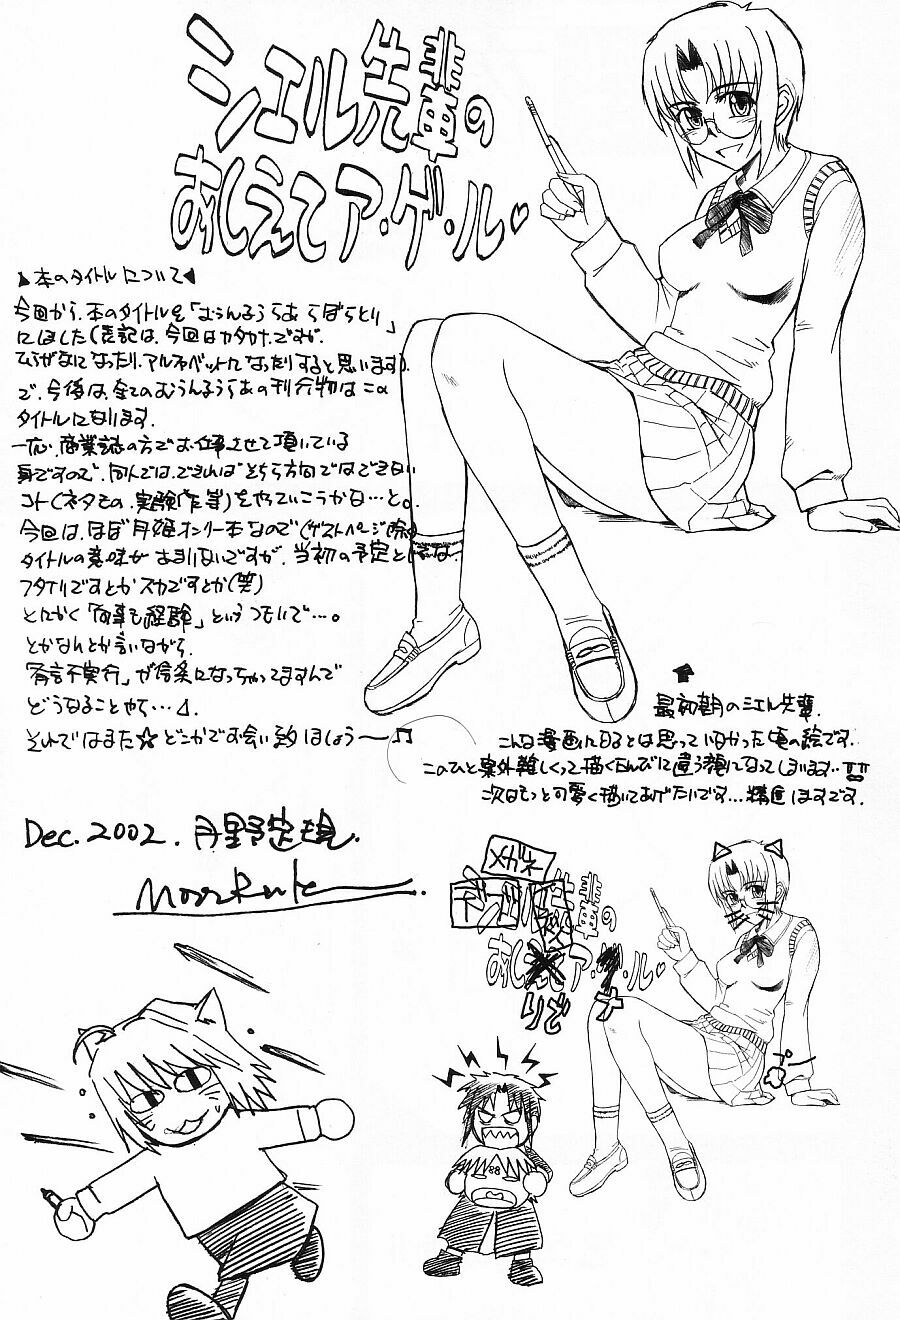 シエル先輩の
おしえてア・ゲ・ル♥
本のタイトルについて
今回から、本のタイトルを「むうんるうらあ らぼらとり」
にしました(表記は、今回はカタカナですが、
ひらがなになったり、アルファベットになったりすると思います)。
で、今後は、全てのむうんるうらあの刊行物はこの
タイトルになります。
一応、商業誌の方でお仕事させて頂いている
身ですので、同人では、できればそちら方面ではできない
コト(ネタとの、実験作等)をやっていこうかな…と。
今回は、ほぼ月姫オンリー本なので(ゲストページ除
タイトルの意味があまりないですが、当初の予定としては
フタナリですとかスカですとか(笑)
とにかく「何事も経験」というつもりで…。
とかなんとか言いながら、
「有言不実行」が信条になっちゃってますんで
どうなることやら…
それではまた☆どこかでお会い致しましょう〜♫
Dec. 2002. 月野定規.
MoonRule
最初期のシエル先輩。
こんな漫画になるとは思っていなかった頃の絵です。
このひと案外難しくって描くたんびに違う顔になってしまいます…!!
次はもっと可愛く描いてあげたいです…精進しますです。
メガネ
デ
輩の
おし
ア・
・ル♥
りど
ナ
プー
88